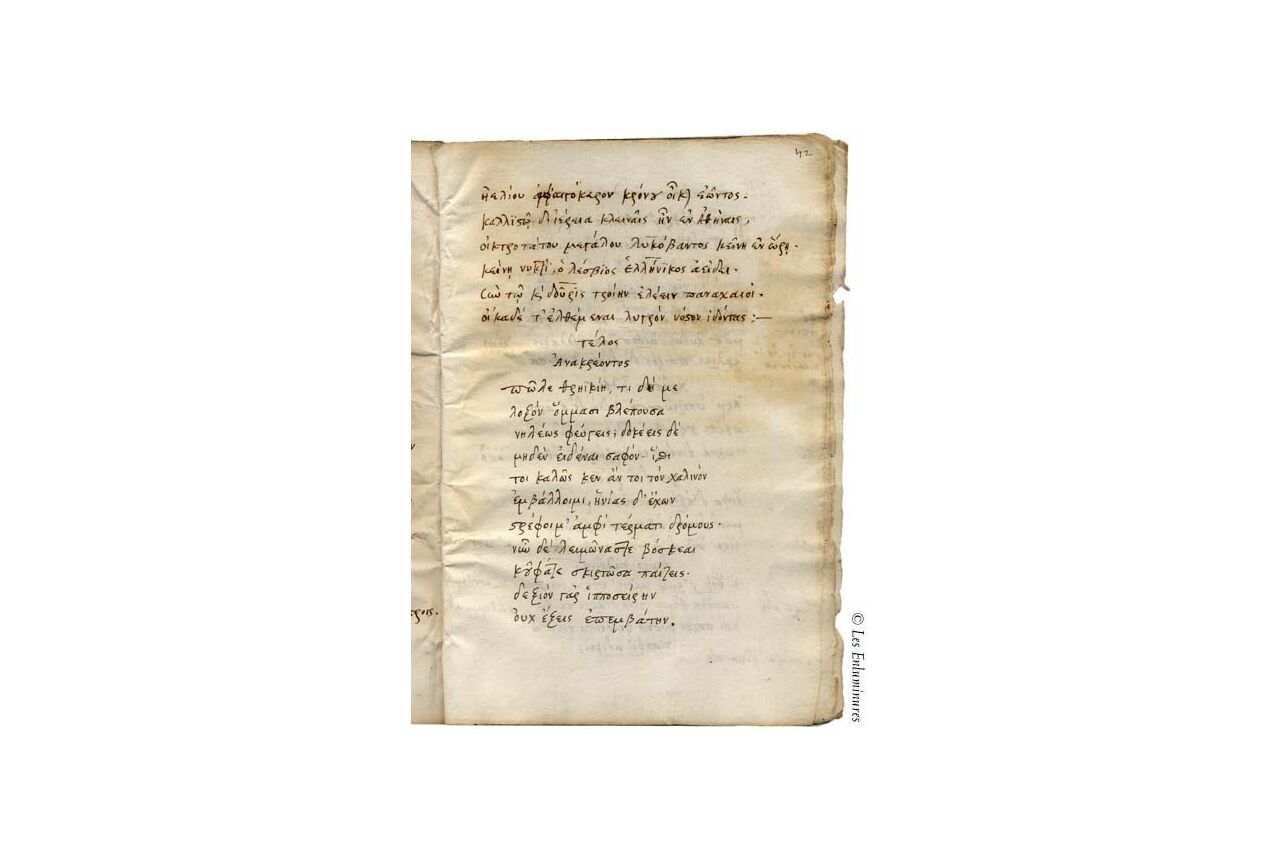 42
ἠελίου αἰγόκερον κρόνου οἶκ εἰῶντος.
καλλιστὼ δ' ἱέρεια κλειναῖς ἦν ἐν Ἀθήναις,
οἰκτροτάτου μεγάλου λυκόβαντος κείνη ἐν ὥρῃ.
κείνῃ νυκτὶ, ὁ λέσβιος ἑλλήνικος ἀείδει.
σὺν τῷ δοῦρις τροίην ἑλέειν παναχαιοί.
οἴκαδέ τ' ἐλθέμεναι λυγρὸν νόσον ἰδόντας :—
τέλος
Ἀνακρέοντος
πῶλε θρηικίη, τι δή με
λοξόν ὄμμασι βλέπουσα
νηλέως φεύγεις; δοκέεις δέ
μηδὲν εἰδέναι σαφόν ἴσθι
τοι καλῶς κεν ἄν τοι τὸν χαλινὸν
ἐμβάλλοιμι, ἡνίας δ' ἔχων
στρέφοιμ' ἀμφὶ τέρματι δρόμους.
νῦν δὲ λειμῶνας τε βόσκεαι
κοῦφά τε σκιρτῶσα παίζεις.
δεξιὸν γὰρ ἱπποσείρην
οὐχ ἕξεις ἐπεμβάτην.
ροις.
© Les Enluminures